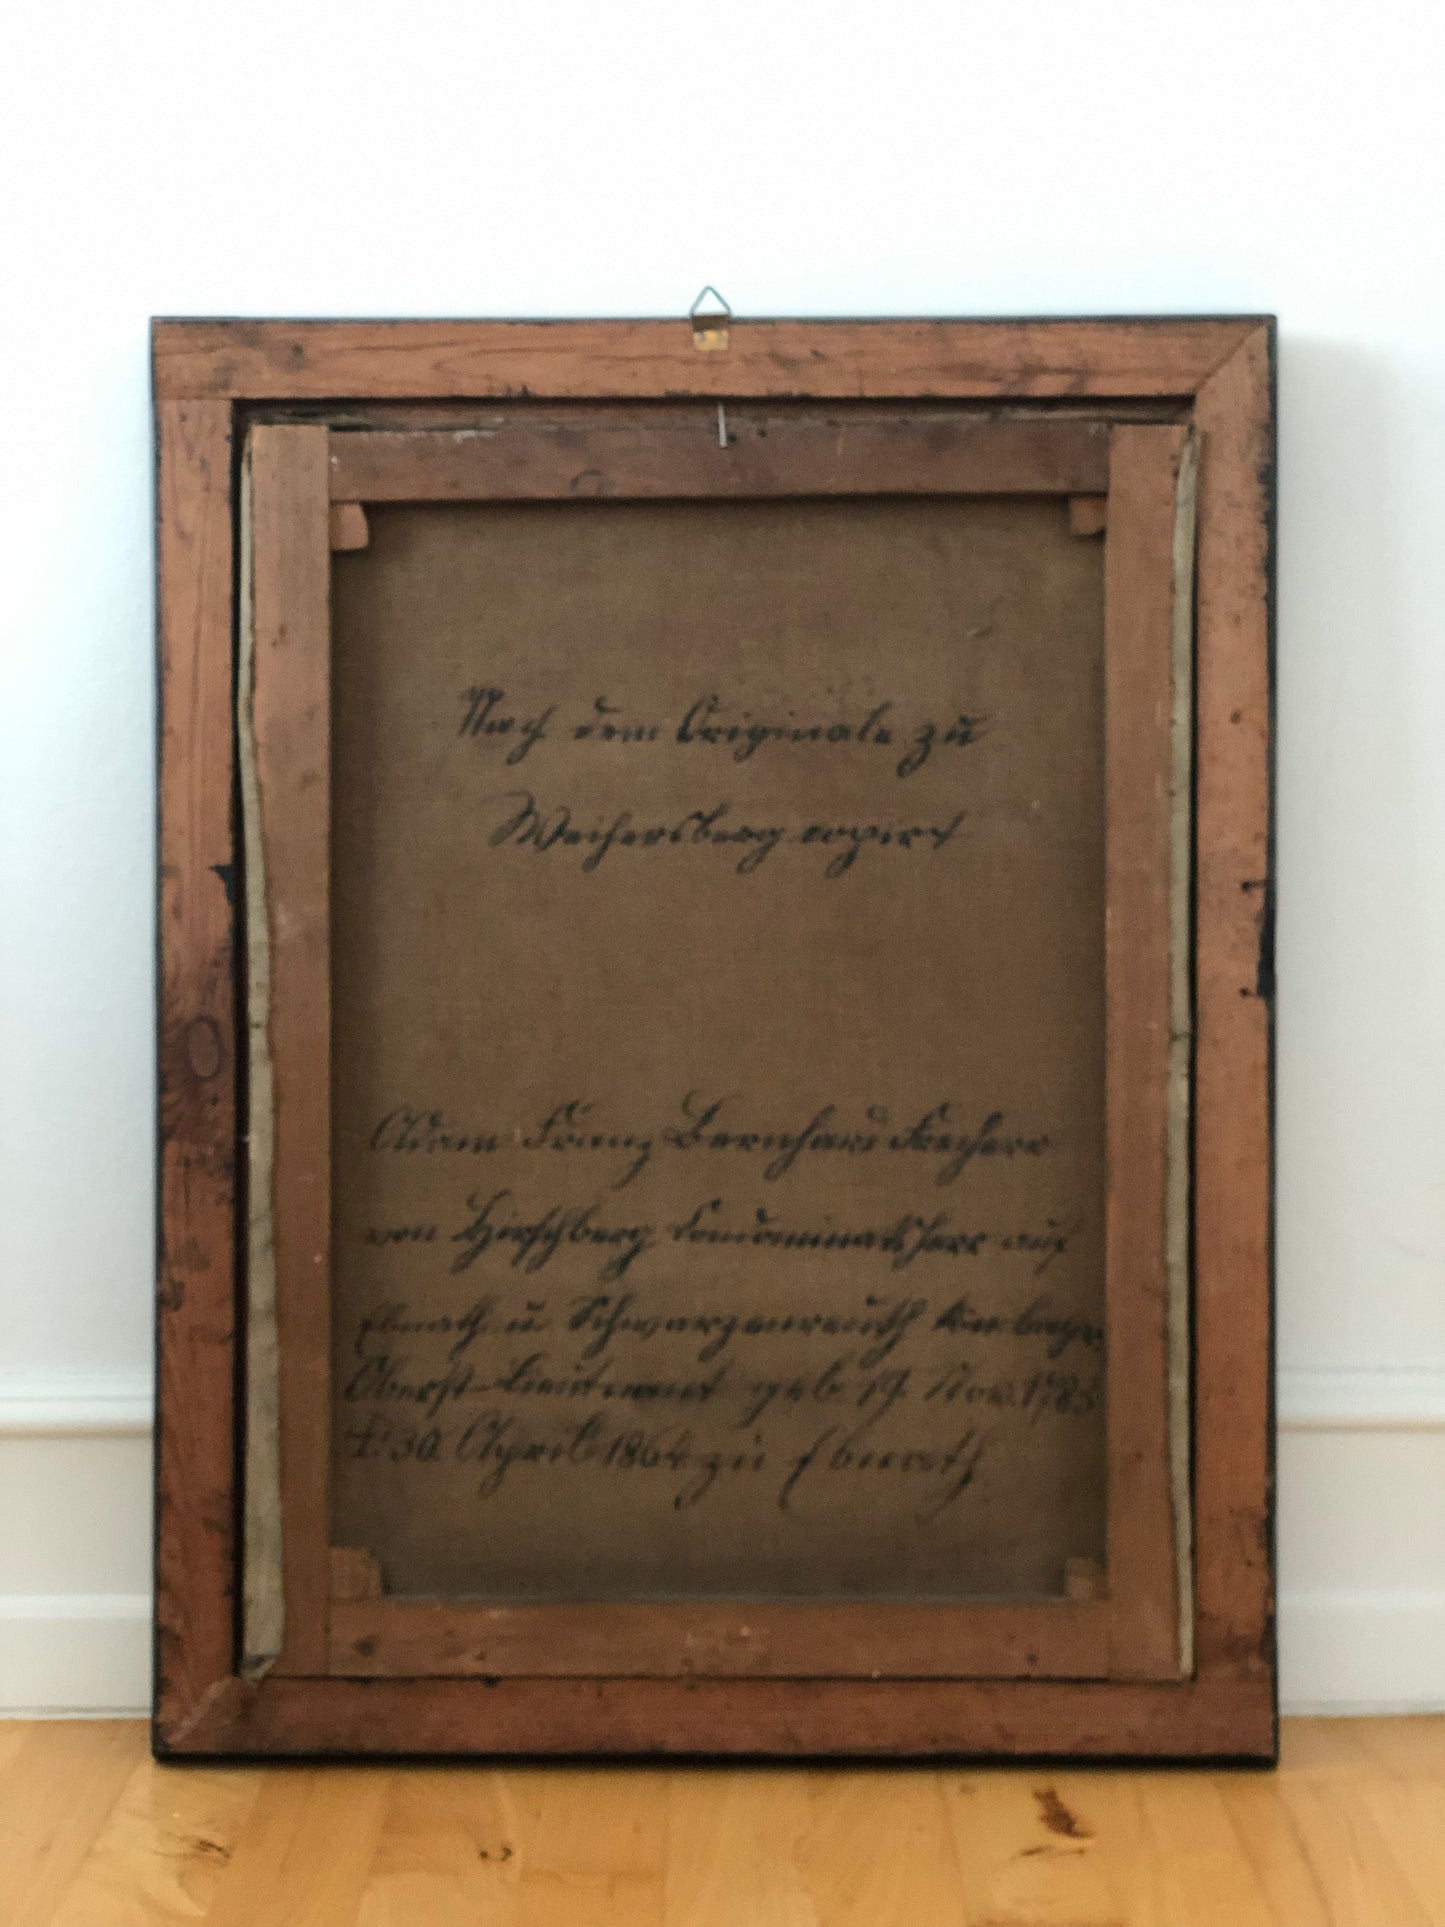 Nach dem Originale zu
Weihersberg copirt
Adam Franz Bernhard Freiherr
von Hirschberg Condominatsherr auf
Ebnath u Schwarzenreuth bayr.
Oberst-Lieutenant geb 19. Nov. 1783
30. April 1864 zu Ebnath